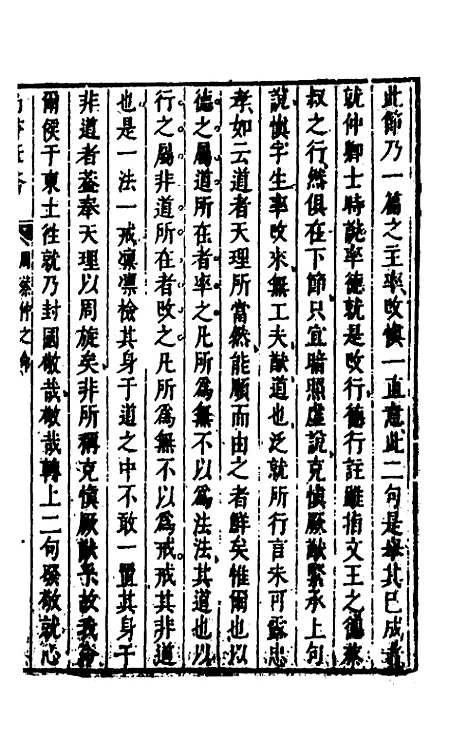 此節乃一篇之主率攺愼一直意此二句是舉其已成者
就仲卿士時說率德就是攺行德行註雖指文王之德蔡
叔之行然俱在下節只宜暗照虛說克愼厥猷緊承上句
說愼字生率攺來無工夫猷道也泛就所行言未可露忠
孝如云道者天理所當然能順而由之者鮮矣惟爾也以
德之屬道所在者率之凡所爲無不以爲法法其道也以
行之屬非道所在者攺之凡所爲無不以爲戒戒其非道
也是一法一戒凜凜檢其身于道之中不敢一置其身于
非道者蓋奉天理以周旋矣非所稱克愼厥猷乎故我命
爾侯于東土徃就乃封國敬哉敬哉轉上二句發敬就心
周蔡仲之命